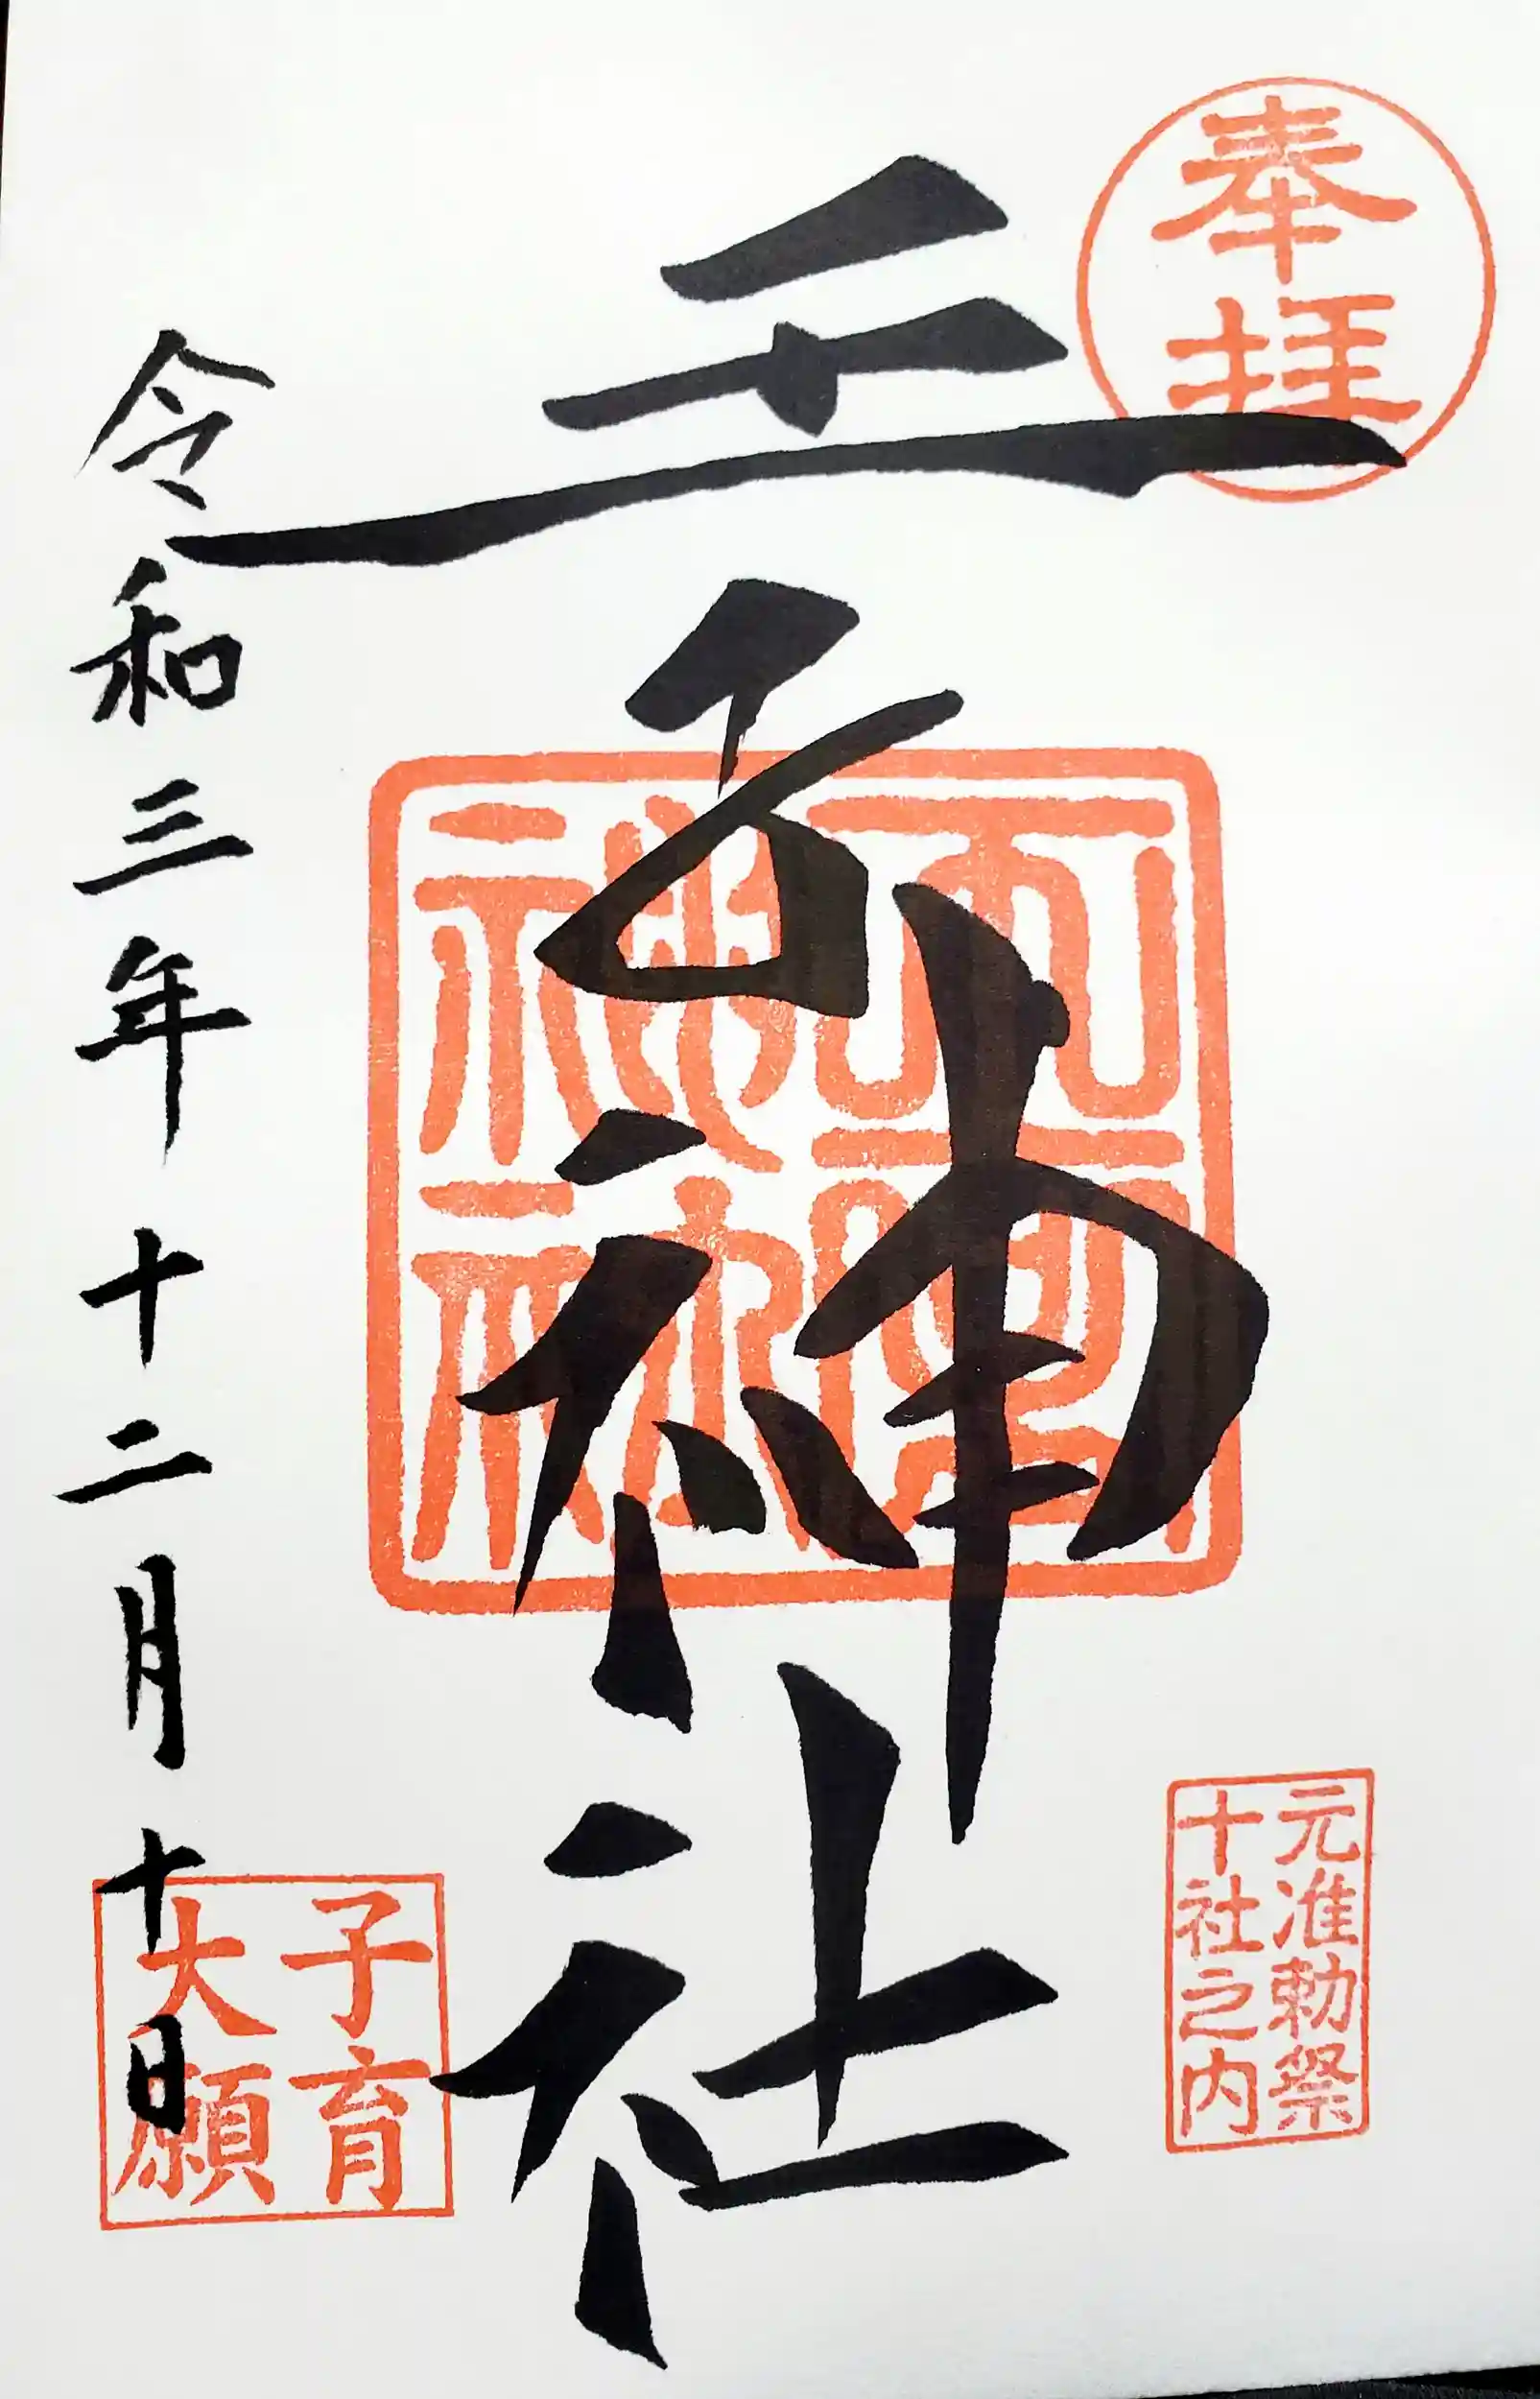 奉拝
元准勅祭
十社之内
王子神社
令和三年十二月十日
子育
大願